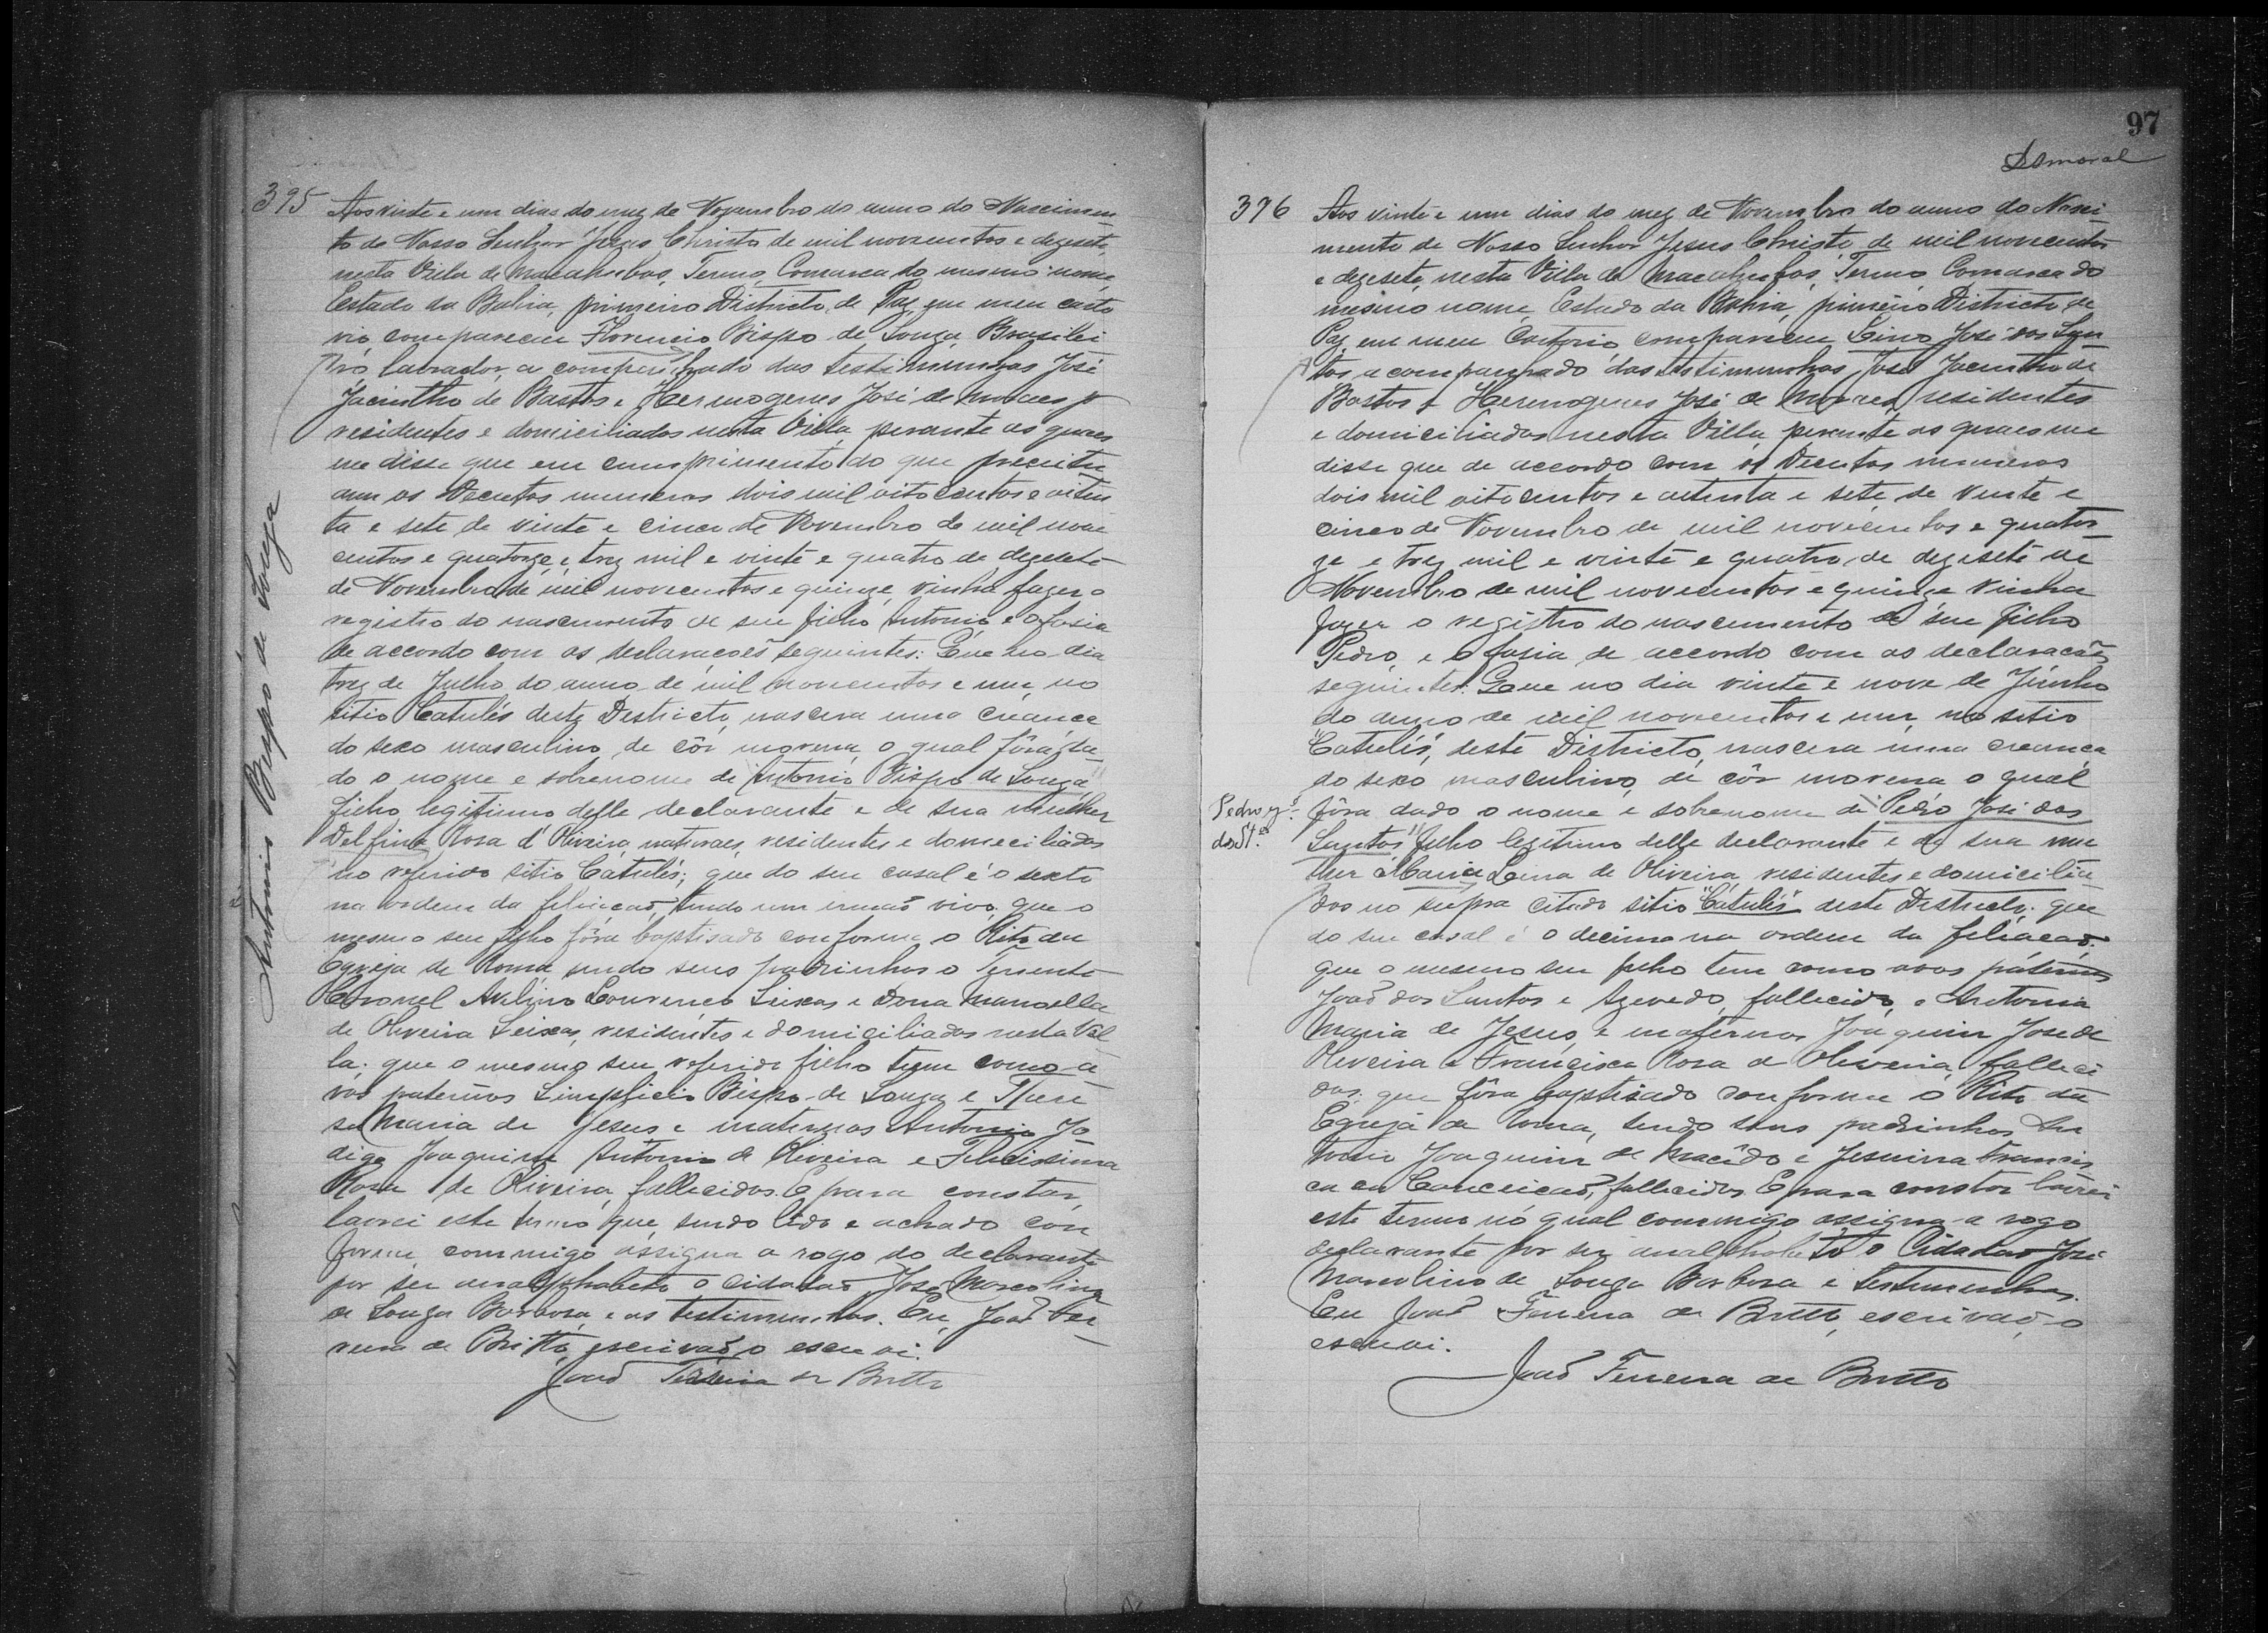 395
Aos vinte e um dias do mez de Novembro do anno do Nascimen
to de Nosso Senhor Jezus Christo de mil novecentos e dezesete,
nesta Villa de Macahubas, Termo, Comarca do mesmo nome,
Estado da Bahia, primeiro Districto de Paz, em meu carto
rio, compareceu Florencio Bispo de Souza, Brasilei
ro lavrador, a companhado das testimunhas José
Jacintho de Bastos e Hermogenes José de Moraes
residentes e domiciliados nesta Villa, perante as quaes
me disse que em cumprimento do que preceitu
am os Decretos numeros dois mil oitocentos e oiten
ta e sete de vinte e cinco de Novembro de mil nove
centos e quatorze e trez mil e vinte e quatro de dezesete
de Novembro de mil novecentos e quinze, vinha fazer o
registro do nascimento de seu filho Antonio e o fasia
de accordo com as declaracoẽs seguintes: Que no dia
trez de Julho do anno de mil novecentos e um, no
sitio Catulés deste Destricto, nascera uma creança
do sexo masculino, de côr morena, o qual fôra da
do o nome e sobrenome de "Antonio Bispo de Souza"
filho legitimo delle declarante e de sua mulher
Delfina Rosa d'Oliveira, naturaes, residentes e domeciliados
no referido sitio Catulés; que do seu casal é o sexto
na ordem da filiacaõ, tendo um irmaõ vivo; que o
mesmo seu filho fôra baptisado conforme o Rito da
Egreja de Roma, sendo seus padrinhos o Tenente
Coronel Avelino Lourenço Seixas e Dona Manoella
de Oliveira Seixas, residentes e domiciliados nesta Vil
la; que o mesmo seu referido filho tem como a
vós paternos Simplicio Bispo de Souza e There
sa Maria de Jesus e maternos Antonio Jo
digo Joaquim Antonio de Oliveira e Felicissima
Rosa de Oliveira, fallecidos. E para constar,
lavrei este termo que, sendo lido e achado con
forme, commigo assigna a rogo do declarante
por ser analphabeto o cidadaõ José Marcolino
de Souza Barbosa, e as testimunhas. Eu, Joaõ Fer
reira de Britto, escrivaõ o escrevi.
Joaõ Ferreira de Britto
Antonio Bispo de Souza
97
396
Aos vinte e um dias do mez de Novembro do anno do Nasci
mento de Nosso Senhor Jesus Christo, de mil novecentos
e dezesete, nesta Villa de Macahubas, Termo, Comarca do
mesmo nome, Estado da Bahia, primeiro Districto de
Paz, em meu Cartorio, compareceu Lino José dos San
tos acompanhado das testimunhas José Jacintho de
Bastos e Hermogenes José de Moraes, residentes
e domiciliados nesta Villa, perante as quaes me
disse que de accordo com os Decretos numeros
dois mil oitocentos e oitenta e sete, de vinte e
cinco de Novembro de mil novecentos e quator
ze e trez mil e vinte e quatro, de dezesete de
Novembro de mil novecentos e quinze vinha
fazer o registro do nascimento de seu filho
Pedro, e o fasia de accordo com as declaracoẽs
seguintes: Que no dia vinte e nove de Junho
do anno de mil novecentos e um, no sitio
"Catulés", deste Districto, nascera uma creança
do sexo masculino, de côr morena o qual
fôra dado o nome e sobrenome de "Pedro José dos
Santos" filho legitimo delle declarante e de sua mu
lher Maria Lina de Oliveira residentes e domicilia
dos no supra citado sitio "Catulés" deste Destricto; que
do seu casal é o decimo na ordem da filiacaõ;
que o mesmo seu filho tem como avos paternos
Joaõ dos Santos e Azevedo, fallecido, e Antonia
Maria de Jesus, e maternos Joaquim José de
Oliveira e Francisca Rosa de Oliveira, falleci
dos; que fôra baptisado conforme o Rito da
Egreja de Roma, sendo seus padrinhos An
tonio Joaquim de Macêdo e Jesuina Francis
ca da Conceicaõ, fallecidos. E para constar lavrei
este termo no qual commigo assigna a rogo
declarante por ser analphabeto o Cidadaõ José
Marcolino de Souza Barbosa e testimunhas.
Eu Joaõ Ferreira de Britto, escrivaõ, o
escrevi.
Joaõ Ferreira de Britto
Pedro J.é
dos S.tos